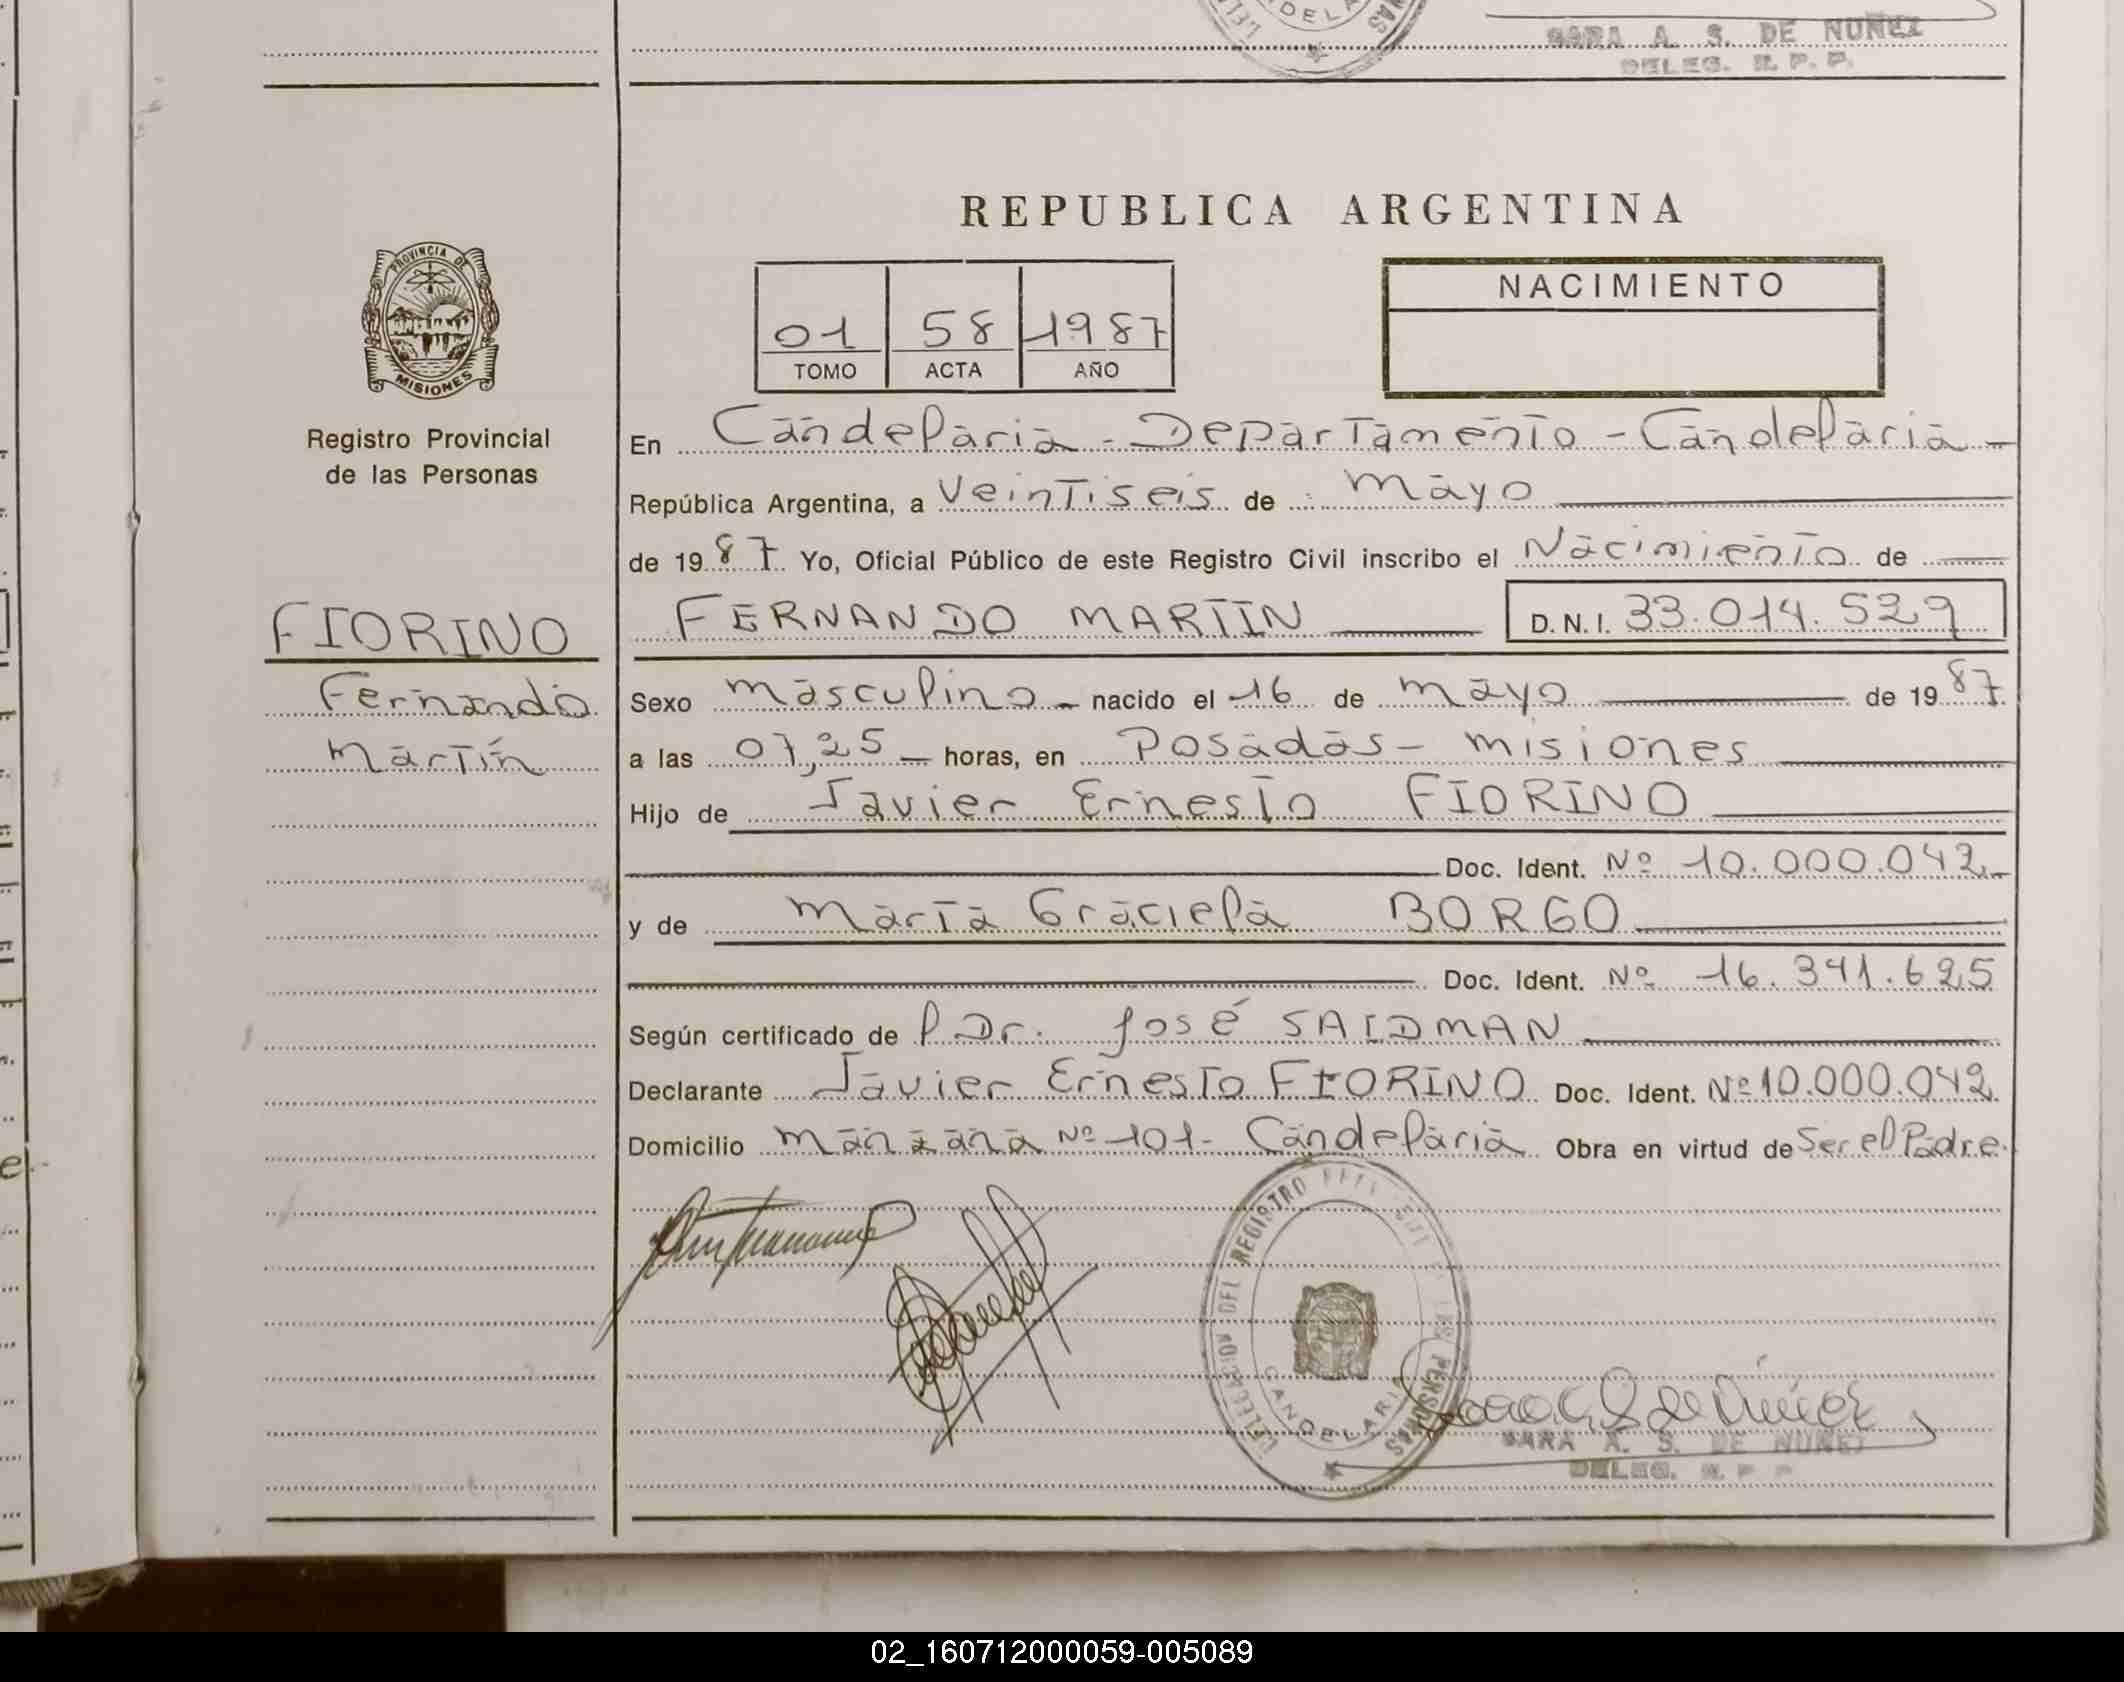 SARA A. S. DE NUÑEZ
DELEG. R. P. P.
REPUBLICA ARGENTINA
PROVINCIA DE
MISIONES
Registro Provincial
de las Personas
01 58 1987
TOMO ACTA AÑO
NACIMIENTO
En Candelaria - Departamento - Candelaria -
República Argentina, a veintiseis de mayo
de 1987 Yo, Oficial Público de este Registro Civil inscribo el Nacimiento de
FIORINO
Fernando
Martín
FERNANDO MARTIN D.N.I. 33.014.529
Sexo masculino - nacido el 16 de mayo de 1987.
a las 07,25 - horas, en Posadas - misiones
Hijo de Javier Ernesto FIORINO
Doc. Ident. Nº 10.000.042.-
y de María Graciela BORGO
Doc. Ident. Nº 16.341.625
Según certificado de l Dr. José SAIDMAN
Declarante Javier Ernesto FIORINO Doc. Ident. Nº 10.000.042
Domicilio manzana Nº 101 - Candelaria Obra en virtud de ser el Padre.
DELEGACION DEL REGISTRO PERSONAS
CANDELARIA
SARA A. S. DE NUÑEZ
DELEG. R. P. P.
02_160712000059-005089